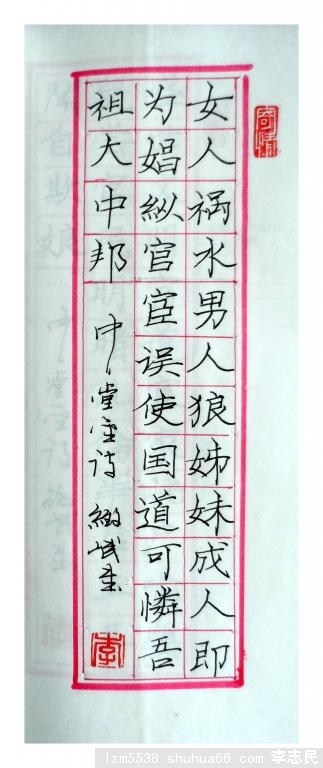 女人祸水男人狼姊妹成人即
为娼纵官宦误使国道可憐吾
祖大中邦
李
lzm5538.shuhua66.com 李志民